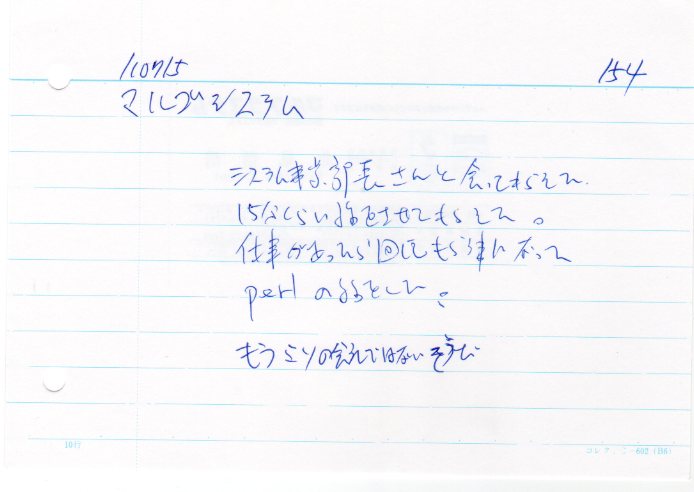 110715
154
マルブンシステム
システム事業部長さんと会ってもらえた。
15分くらい話をさせてもらえた。
仕事があったら回してもらう事になった
perl の話をした。
もうミソの会社ではないそうだ
10行
コレクト C-602 (B6)